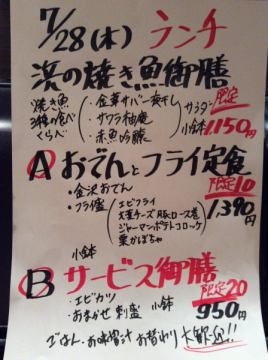 7/28(木) ランチ
浜の焼き魚御膳
焼き魚
3種の食べ
くらべ
・金華サバ一夜干し
・サワラ柚庵
・赤魚吟醸
サラダ
小鉢
限定
1,150円
A おでんとフライ定食
限定10
1,390円
・金沢おでん
・フライ盛
エビフライ
大葉チーズ豚ロース巻
ジャーマンポテトコロッケ
栗かぼちゃ
小鉢
B サービス御膳
限定20
950円
・エビカツ
・おまかせ刺盛 小鉢
ごはん・お味噌汁 お替わり 大歓迎!!